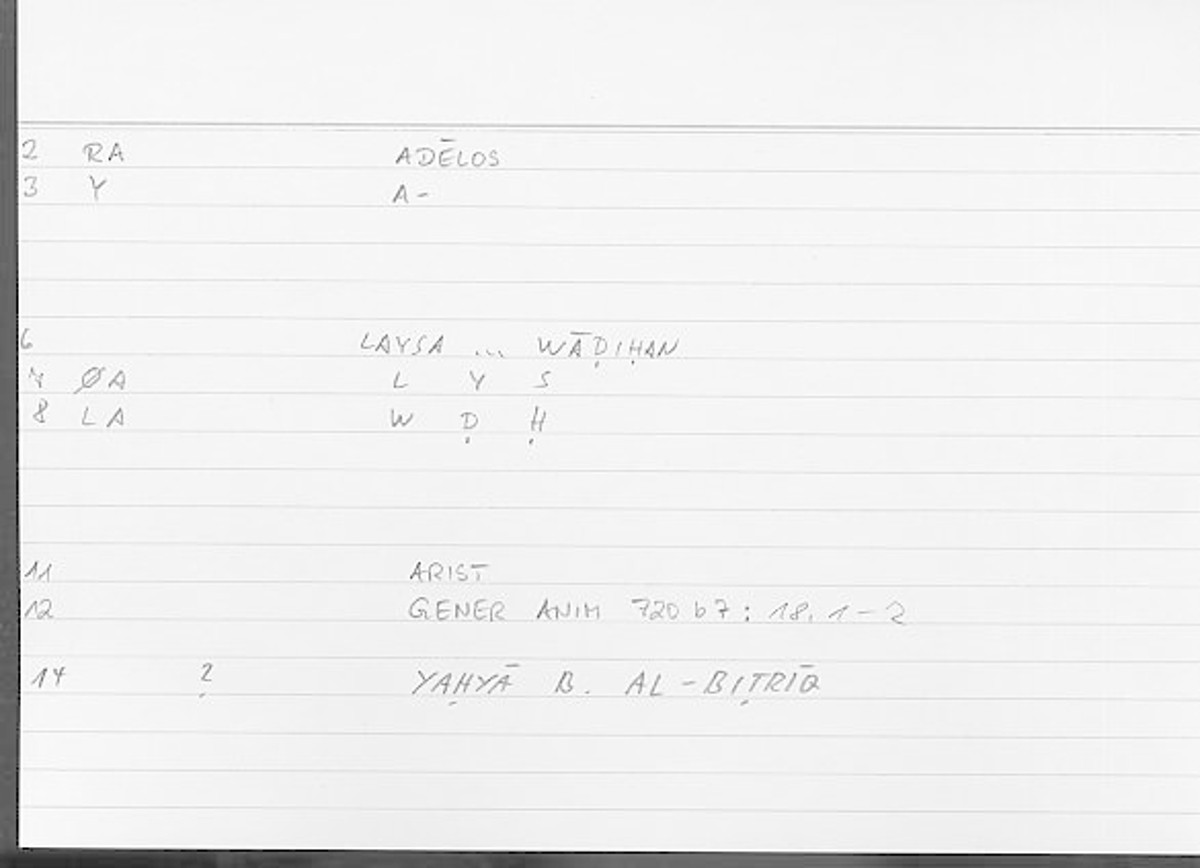 2 RA ADĒLOS
3 Y A-
6 LAYSA ... WĀḌIḤAN
7 ØA L Y S
8 LA W Ḍ Ḥ
11 ARIST
12 GENER ANIM 720 b 7 : 18. 1 - 2
14 ? YAḤYĀ B. AL-BIṬRĪQ